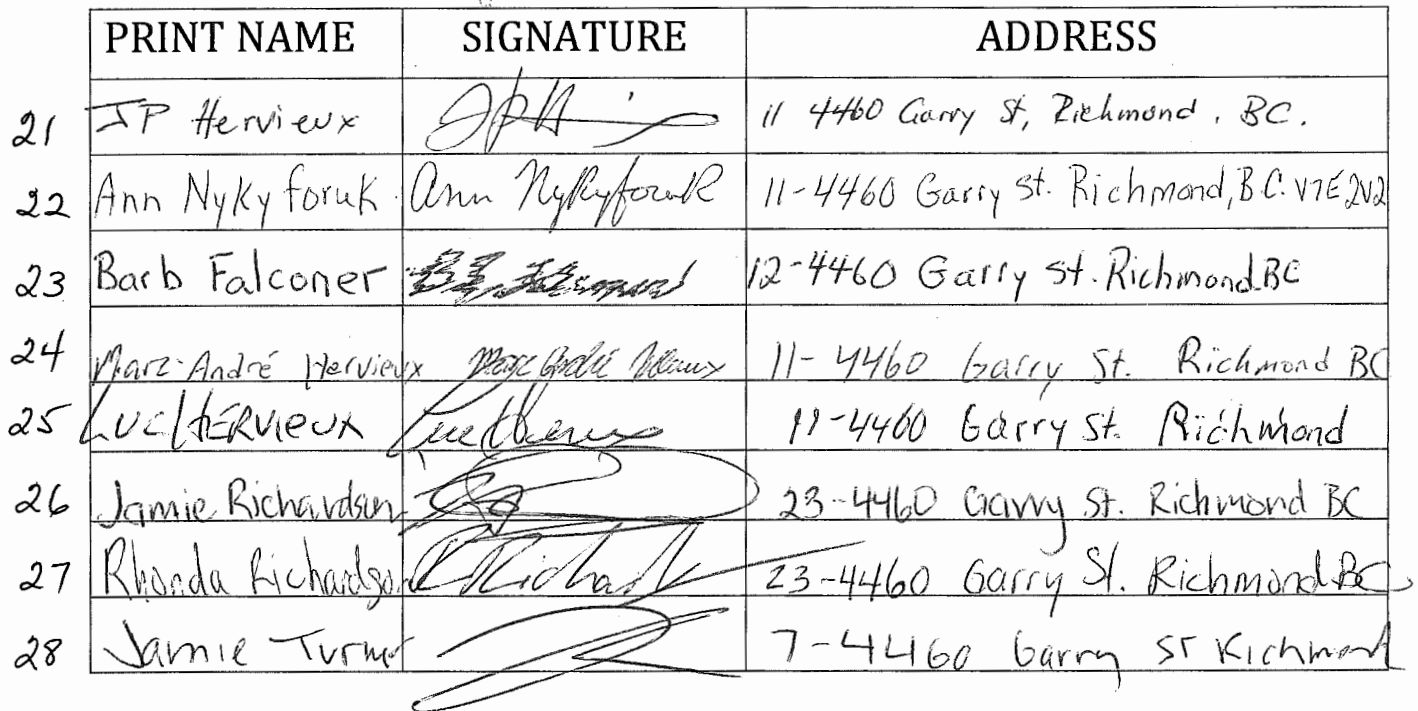 PRINT NAME SIGNATURE ADDRESS
21 JP Hervieux JPH 11 4460 Garry St, Richmond, BC.
22 Ann Nykyforuk Ann Nykyforuk 11-4460 Garry St. Richmond, B.C. V7E 2V2
23 Barb Falconer 12-4460 Garry St. Richmond BC
24 Marc-André Hervieux Marc André 11-4460 Garry St. Richmond BC
25 Luc HERVIEUX Luc 11-4460 Garry St. Richmond
26 Jamie Richardson 23-4460 Garry St. Richmond BC
27 Rhonda Richardson 23-4460 Garry St. Richmond BC
28 Jamie Turner 7-4460 Garry ST Richmond